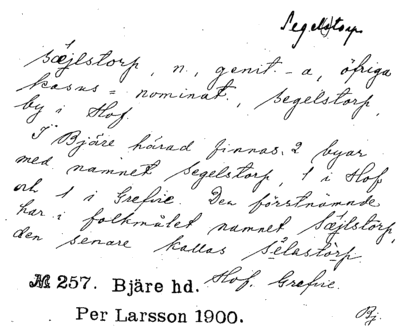 Segelstorp
sæjlstorp, n., genit. -a, öfriga
kasus = nominat., segelstorp,
by i Hof.
I Bjäre härad finnas 2 byar
med namnet segelstorp, 1 i Hof
och 1 i Grefvie. Den förstnämnde
har i folkmålet namnet sæjlstorp,
den senare kallas sēlastorp.
№ 257. Bjäre hd. Hof. Grefvie.
Per Larsson 1900.
Bj.